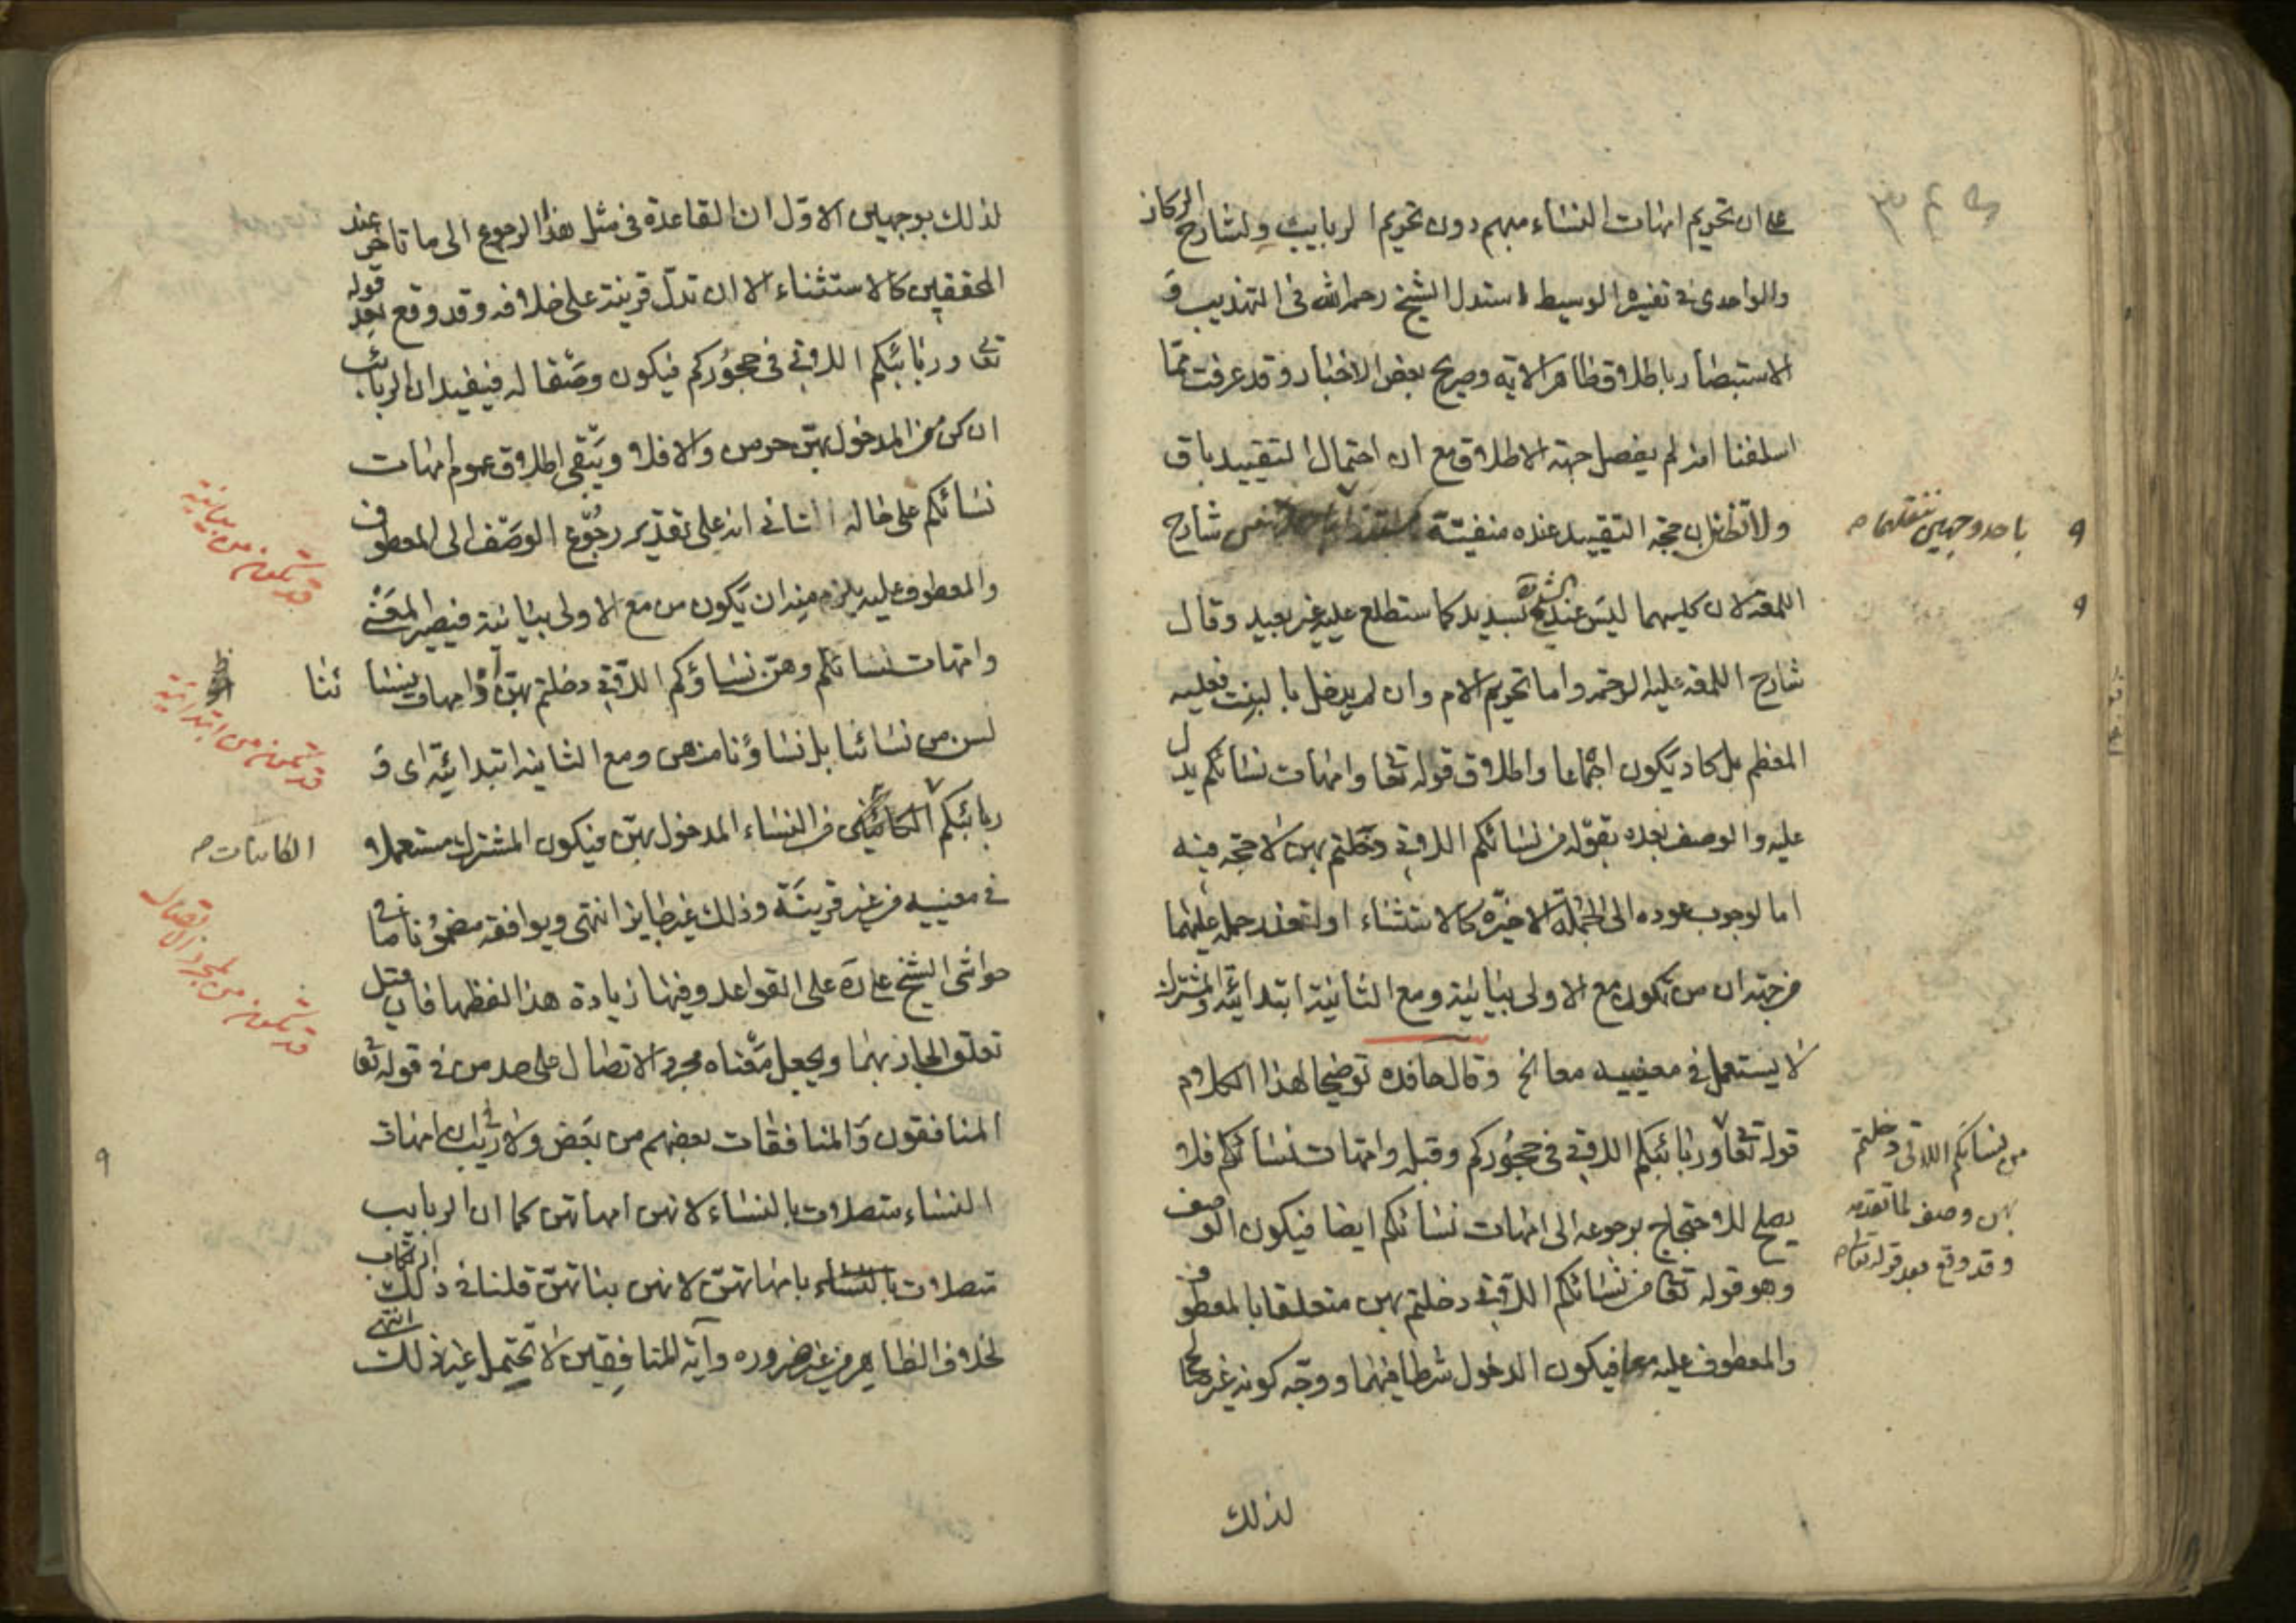 على ان تحريم امهات النساء مبهم دون تحريم الربايب ولشارح
والواحدى فى تفسيره الوسيط استدل الشيخ رحمه الله فى التهذيب و
الاستبصار باطلاق ظاهر الاية وصريح بعض الاخبار وقد عرفت مما
اسلفنا انه لم يفصل جهة الاطلاق مع ان احتمال التقييد باق
ولا تظنن ان حجة التقييد عنده منفيّة شارح
باحد وجهين ننقلهما
اللمعة لان كليهما ليس عند الشيخ بسديد كما ستطلع عليه غير بعيد وقال
شارح اللمعة عليه الرحمه واما تحريم الام وان لم يدخل بالبنت فعليه
المعظم بل كاد يكون اجماعا واطلاق قوله تعا وامهات نسائكم يدل
عليه والوصف بعده بقوله من نسائكم اللاتى دخلتم بهن لا حجة فيه
اما لوجوب عوده الى الجملة الاخيرة كالاستثناء او لتعذر حمله عليهما
من جهة ان من تكون مع الاولى بيانية ومع الثانية ابتدائية والمشترك
لا يستعمل فى معنييه معا الخ وقال حافده توضيحا لهذا الكلام
قوله تعا وربائبكم اللاتى فى حجوركم وقبله وامهات نسائكم فلا
من نسائكم اللاتى دخلتم
بهن وصف لما تقدمه
وقد وقع بعد قوله تعا
يصلح للاحتجاج برجوعه الى امهات نسائكم ايضا فيكون الوصف
وهو قوله تعا من نسائكم اللاتى دخلتم بهن متعلقا بالمعطوف
والمعطوف عليه معا فيكون الدخول شرطا فيهما ووجه كونه غير
لذلك
لذلك بوجهين الاول ان القاعدة فى مثل هذا الرجوع الى ما تاخر عند
المحققين كالاستثناء الا ان تدل قرينة على خلافه وقد وقع بعد قوله
تعا وربائبكم اللاتى فى حجوركم فيكون وصفا له فيفيد ان الربائب
ان كن من المدخول بهن حرمن والا فلا ويبقى اطلاق عموم امهات
نسائكم على حاله الثانى انه على تقدير رجوع الوصف الى المعطوف
والمعطوف عليه يلزم منه ان يكون من مع الاولى بيانية فيصير المعنى
وامهات نسائكم وهن نساؤكم اللاتى دخلتم بهن وامهات نسا ئنا
لسن من نسائنا بل نساؤنا منهن ومع الثانية ابتدائية اى و
ربائبكم من النساء المدخول بهن فيكون المشترك مستعملا
الكائنات
فى معنييه من غير قرينة وذلك غير جايز انتهى ويوافقه مضمونا ما فى
حواشى الشيخ على ره على القواعد وفيها زيادة هذا لفظها فان قيل
تعلق الجار بهما ويجعل معناه مجرد الاتصال على حد من فى قوله تعا
المنافقون والمنافقات بعضهم من بعض ولا ريب ان امهات
النساء متصلات بالنساء لانهن امهاتهن كما ان الربايب
متصلات بامهاتهن لانهن بناتهن قلنا فى ذلك ارتكاب
لخلاف الظاهر من غير ضروره وآية المنافقين لا تحتمل غير ذلك انتهى